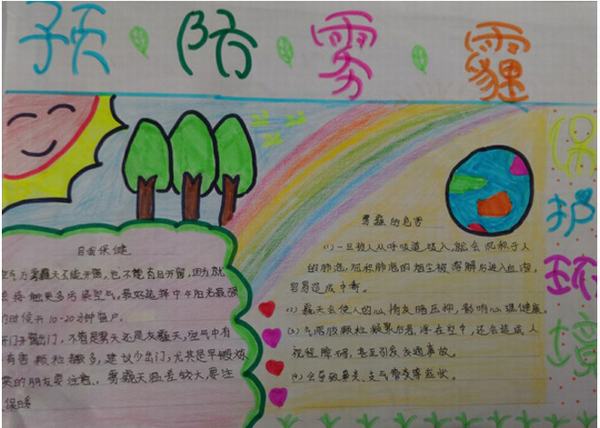 预防雾霾
保护环境
自我保健
雾霾天不能开窗,也不能盲目开窗,因为就
会接触更多污染空气,最好选择中午阳光最强
的时候开10-20分钟窗户。
不管是雾天还是灰霾天,空气中有
有害颗粒都多,建议少出门,尤其是早晨
的朋友要注意,雾霾天温差较大,要注
保暖
雾霾的危害
(1)一旦被人从呼吸道吸入,就会沉积于人
的肺泡,沉积肺泡的烟尘被溶解与进入血液,
容易造成中毒。
霾天会使人的心情灰暗压抑,影响心理健康
气溶胶颗粒 浮在空中,还会造成人
视程障碍,甚至引发交通事故。
会导致鼻炎、支气管炎等症状。